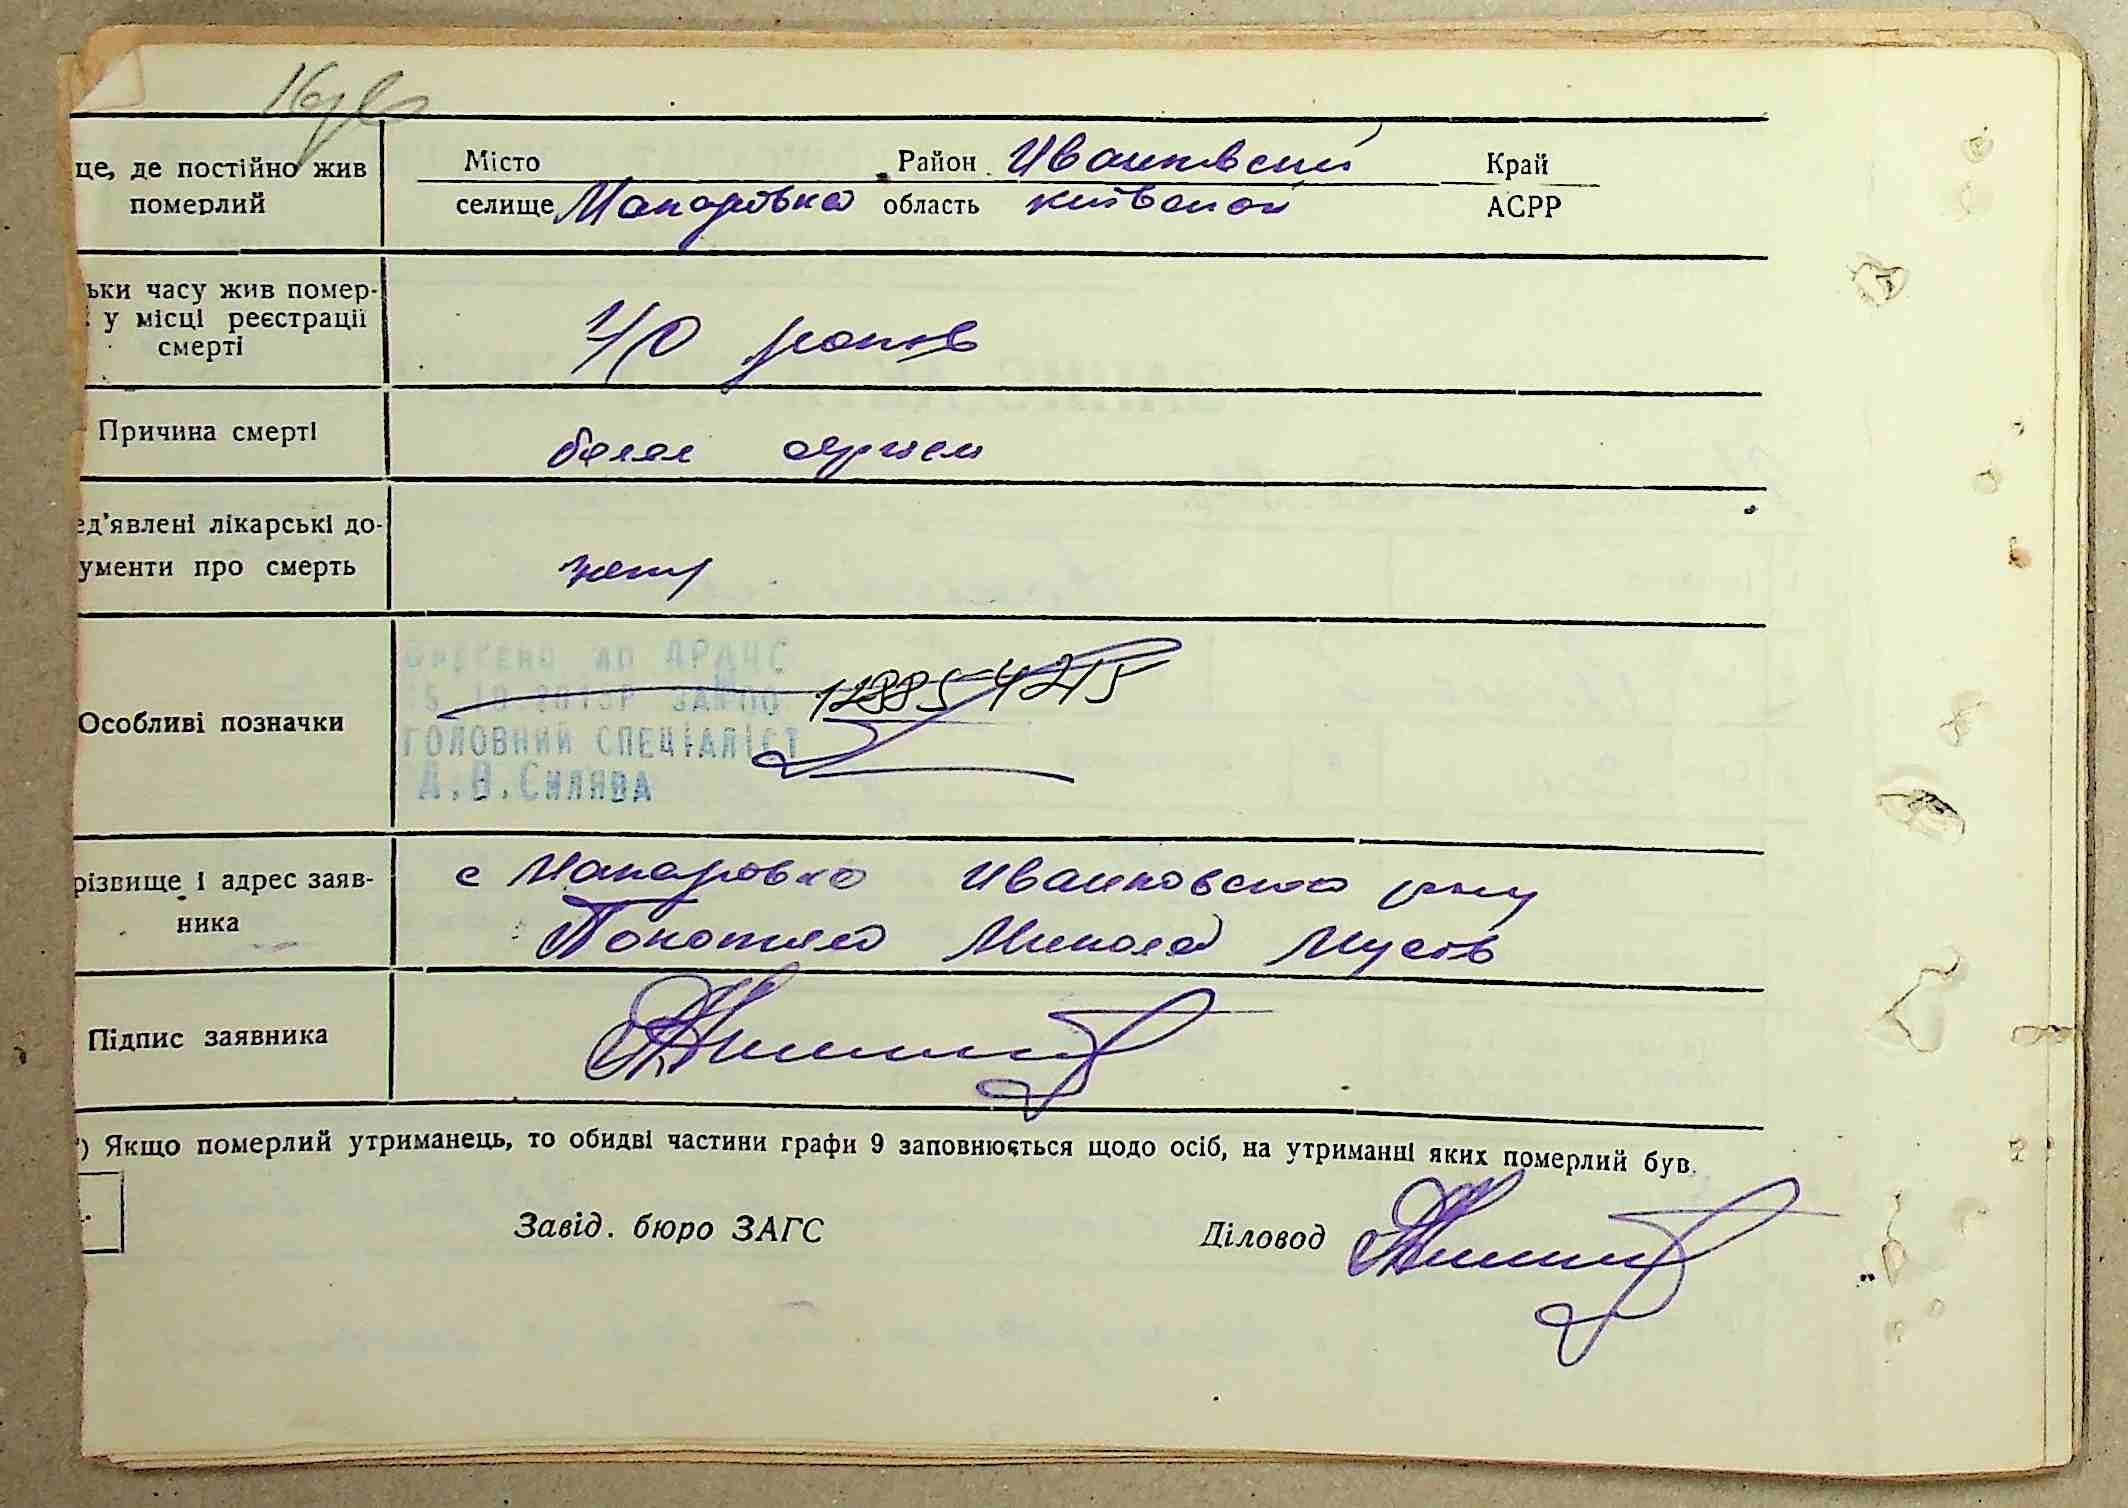 це, де постійно жив
померлий
Місто Район Иванковский Край
селище Макаровка область київской АСРР
ьки часу жив помер-
у місці реєстрації
смерті
40 років
Причина смерті
ед'явлені лікарські до-
ументи про смерть
нету
Особливі позначки
Внесено до ДРАЦС
ГОЛОВНИЙ СПЕЦІАЛІСТ
12885-4215
різвище і адрес заяв-
ника
с Макаровка Иванковского р-ну
Микола
Підпис заявника
) Якщо померлий утриманець, то обидві частини графи 9 заповнюється щодо осіб, на утриманні яких померлий був.
Завід. бюро ЗАГС
Діловод